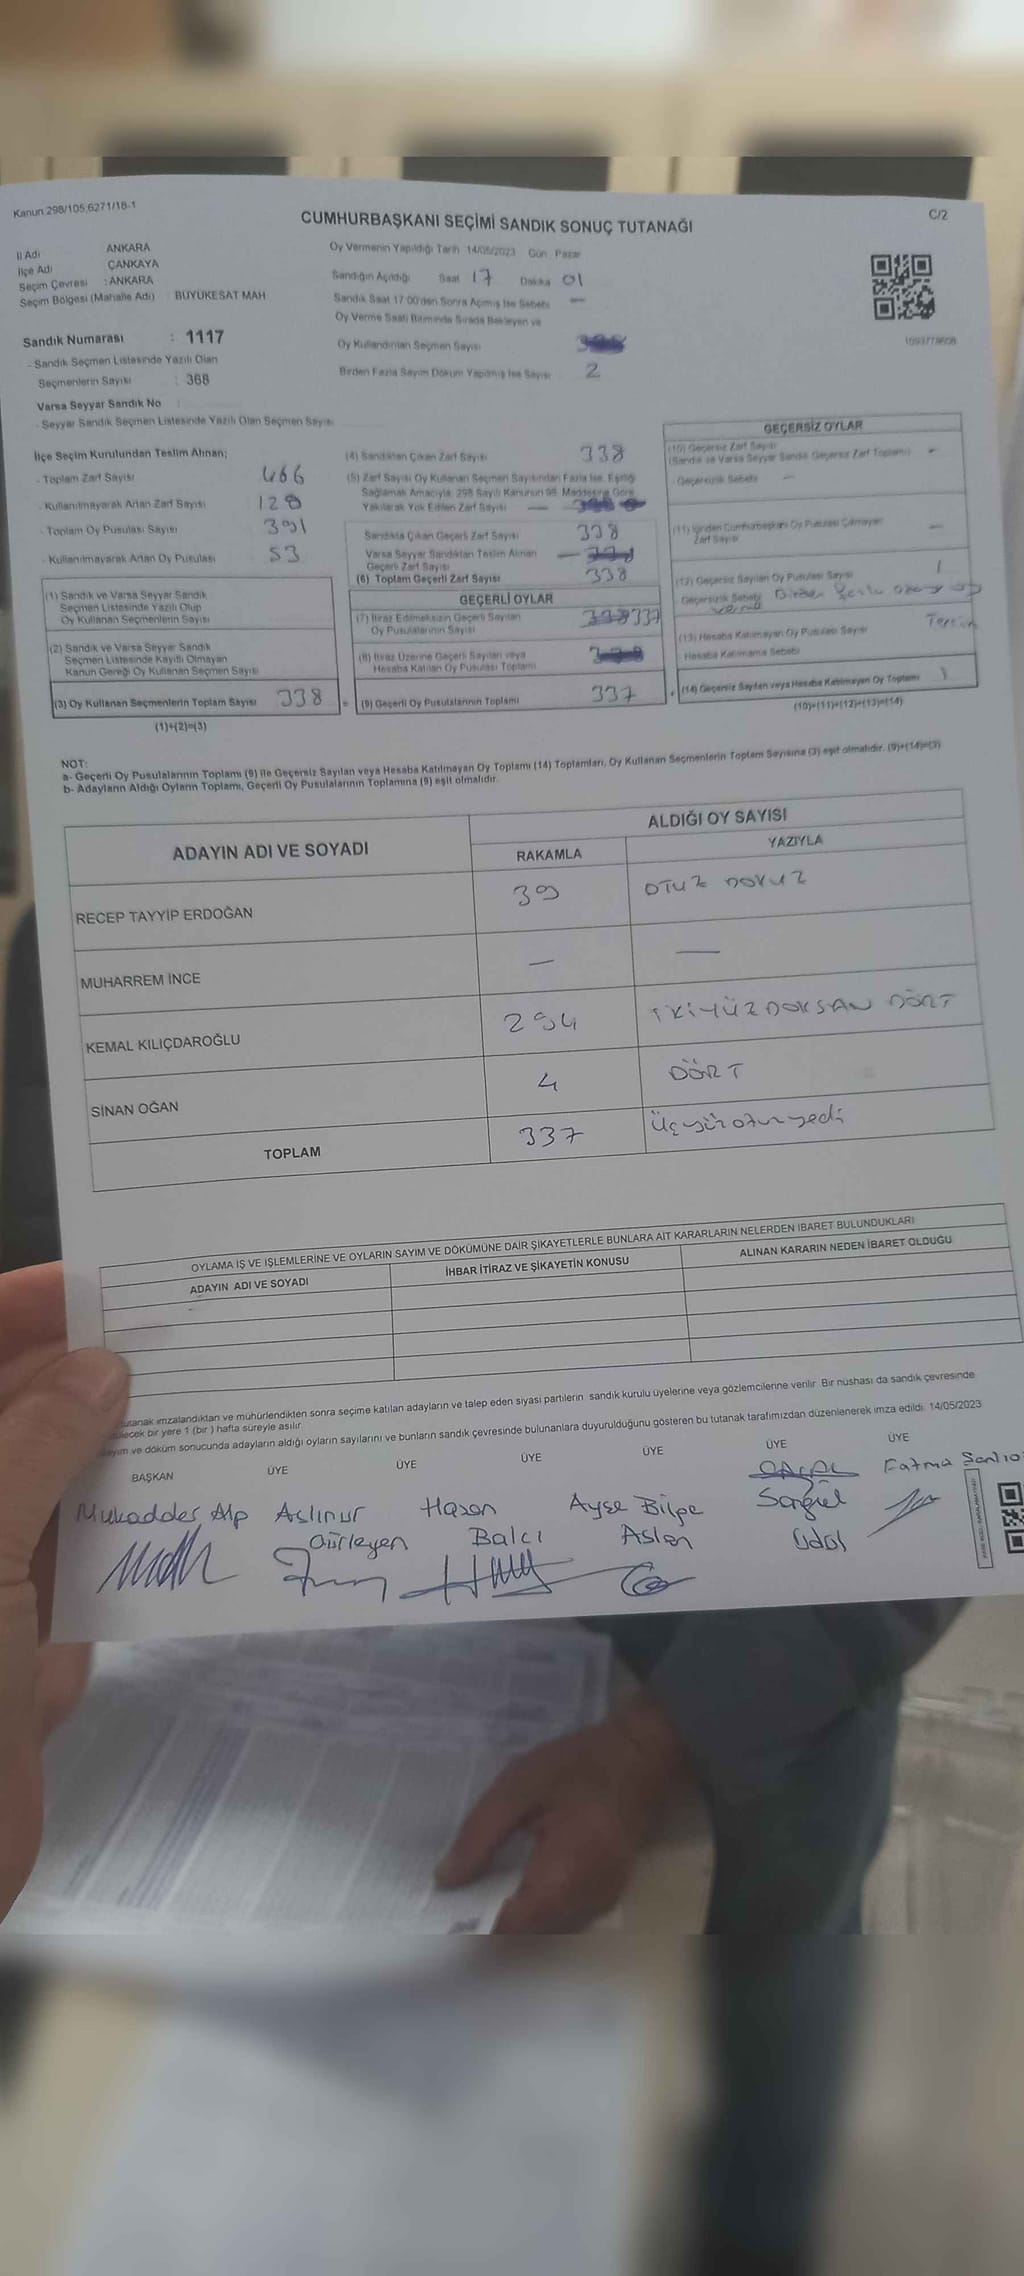 Kanun 298/105,6271/18-1
C/2
CUMHURBAŞKANI SEÇİMİ SANDIK SONUÇ TUTANAĞI
İl Adı ANKARA
İlçe Adı ÇANKAYA
Seçim Çevresi : ANKARA
Seçim Bölgesi (Mahalle Adı) BÜYÜKESAT MAH
Sandık Numarası : 1117
- Sandık Seçmen Listesinde Yazılı Olan
Seçmenlerin Sayısı : 368
Varsa Seyyar Sandık No
- Seyyar Sandık Seçmen Listesinde Yazılı Olan Seçmen Sayısı
Oy Vermenin Yapıldığı Tarih 14/05/2023 Gün Pazar
Sandığın Açıldığı Saat 17 Dakika 01
Sandık Saat 17 00'den Sonra Açılmış İse Sebebi —
Oy Verme Saati Bitiminde Sırada Bekleyen ve
Oy Kullandırılan Seçmen Sayısı
Birden Fazla Sayım Döküm Yapılmış İse Sayısı 2
İlçe Seçim Kurulundan Teslim Alınan;
- Toplam Zarf Sayısı 466
- Kullanılmayarak Artan Zarf Sayısı 128
- Toplam Oy Pusulası Sayısı 391
- Kullanılmayarak Artan Oy Pusulası 53
(1) Sandık ve Varsa Seyyar Sandık
Seçmen Listesinde Yazılı Olup
Oy Kullanan Seçmenlerin Sayısı
(2) Sandık ve Varsa Seyyar Sandık
Seçmen Listesinde Kayıtlı Olmayan
Kanun Gereği Oy Kullanan Seçmen Sayısı
(3) Oy Kullanan Seçmenlerin Toplam Sayısı 338 =
(1)+(2)=(3)
(4) Sandıktan Çıkan Zarf Sayısı 338
(5) Zarf Sayısı Oy Kullanan Seçmen Sayısından Fazla İse, Eşitliği
Sağlamak Amacıyla; 298 Sayılı Kanunun 98. Maddesine Göre
Yakılarak Yok Edilen Zarf Sayısı —
Sandıkta Çıkan Geçerli Zarf Sayısı 338
Varsa Seyyar Sandıktan Teslim Alınan
Geçerli Zarf Sayısı —
(6) Toplam Geçerli Zarf Sayısı 338
GEÇERLİ OYLAR
(7) İtiraz Edilmeksizin Geçerli Sayılan
Oy Pusulalarının Sayısı 337
(8) İtiraz Üzerine Geçerli Sayılan veya
Hesaba Katılan Oy Pusulası Toplamı
(9) Geçerli Oy Pusulalarının Toplamı 337 +
GEÇERSİZ OYLAR
(10) Geçersiz Zarf Sayısı
(Sandık ve Varsa Seyyar Sandık Geçersiz Zarf Toplamı) —
- Geçersizlik Sebebi —
(11) İçinden Cumhurbaşkanı Oy Pusulası Çıkmayan
Zarf Sayısı —
(12) Geçersiz Sayılan Oy Pusulası Sayısı 1
- Geçersizlik Sebebi Birden
(13) Hesaba Katılmayan Oy Pusulası Sayısı
- Hesaba Katılmama Sebebi
(14) Geçersiz Sayılan veya Hesaba Katılmayan Oy Toplamı 1
(10)+(11)+(12)+(13)=(14)
NOT:
a- Geçerli Oy Pusulalarının Toplamı (9) ile Geçersiz Sayılan veya Hesaba Katılmayan Oy Toplamı (14) Toplamları, Oy Kullanan Seçmenlerin Toplam Sayısına (3) eşit olmalıdır. (9)+(14)=(3)
b- Adayların Aldığı Oyların Toplamı, Geçerli Oy Pusulalarının Toplamına (9) eşit olmalıdır.
ADAYIN ADI VE SOYADI
ALDIĞI OY SAYISI
RAKAMLA YAZIYLA
RECEP TAYYİP ERDOĞAN 39 OTUZ DOKUZ
MUHARREM İNCE — —
KEMAL KILIÇDAROĞLU 294 İKİYÜZDOKSAN DÖRT
SİNAN OĞAN 4 DÖRT
TOPLAM 337 Üçyüzotuzyedi
OYLAMA İŞ VE İŞLEMLERİNE VE OYLARIN SAYIM VE DÖKÜMÜNE DAİR ŞİKAYETLERLE BUNLARA AİT KARARLARIN NELERDEN İBARET BULUNDUKLARI
ADAYIN ADI VE SOYADI İHBAR İTİRAZ VE ŞİKAYETİN KONUSU ALINAN KARARIN NEDEN İBARET OLDUĞU
tutanak imzalandıktan ve mühürlendikten sonra seçime katılan adayların ve talep eden siyasi partilerin sandık kurulu üyelerine veya gözlemcilerine verilir. Bir nüshası da sandık çevresinde
bir yere 1 (bir ) hafta süreyle asılır.
ve döküm sonucunda adayların aldığı oyların sayılarını ve bunların sandık çevresinde bulunanlara duyurulduğunu gösteren bu tutanak tarafımızdan düzenlenerek imza edildi. 14/05/2023
BAŞKAN ÜYE ÜYE ÜYE ÜYE ÜYE ÜYE
Mukaddes Alp
Aslınur
Gürleyen
Hasan
Balcı
Ayşe Bilge
Aslan
Songül
Fatma